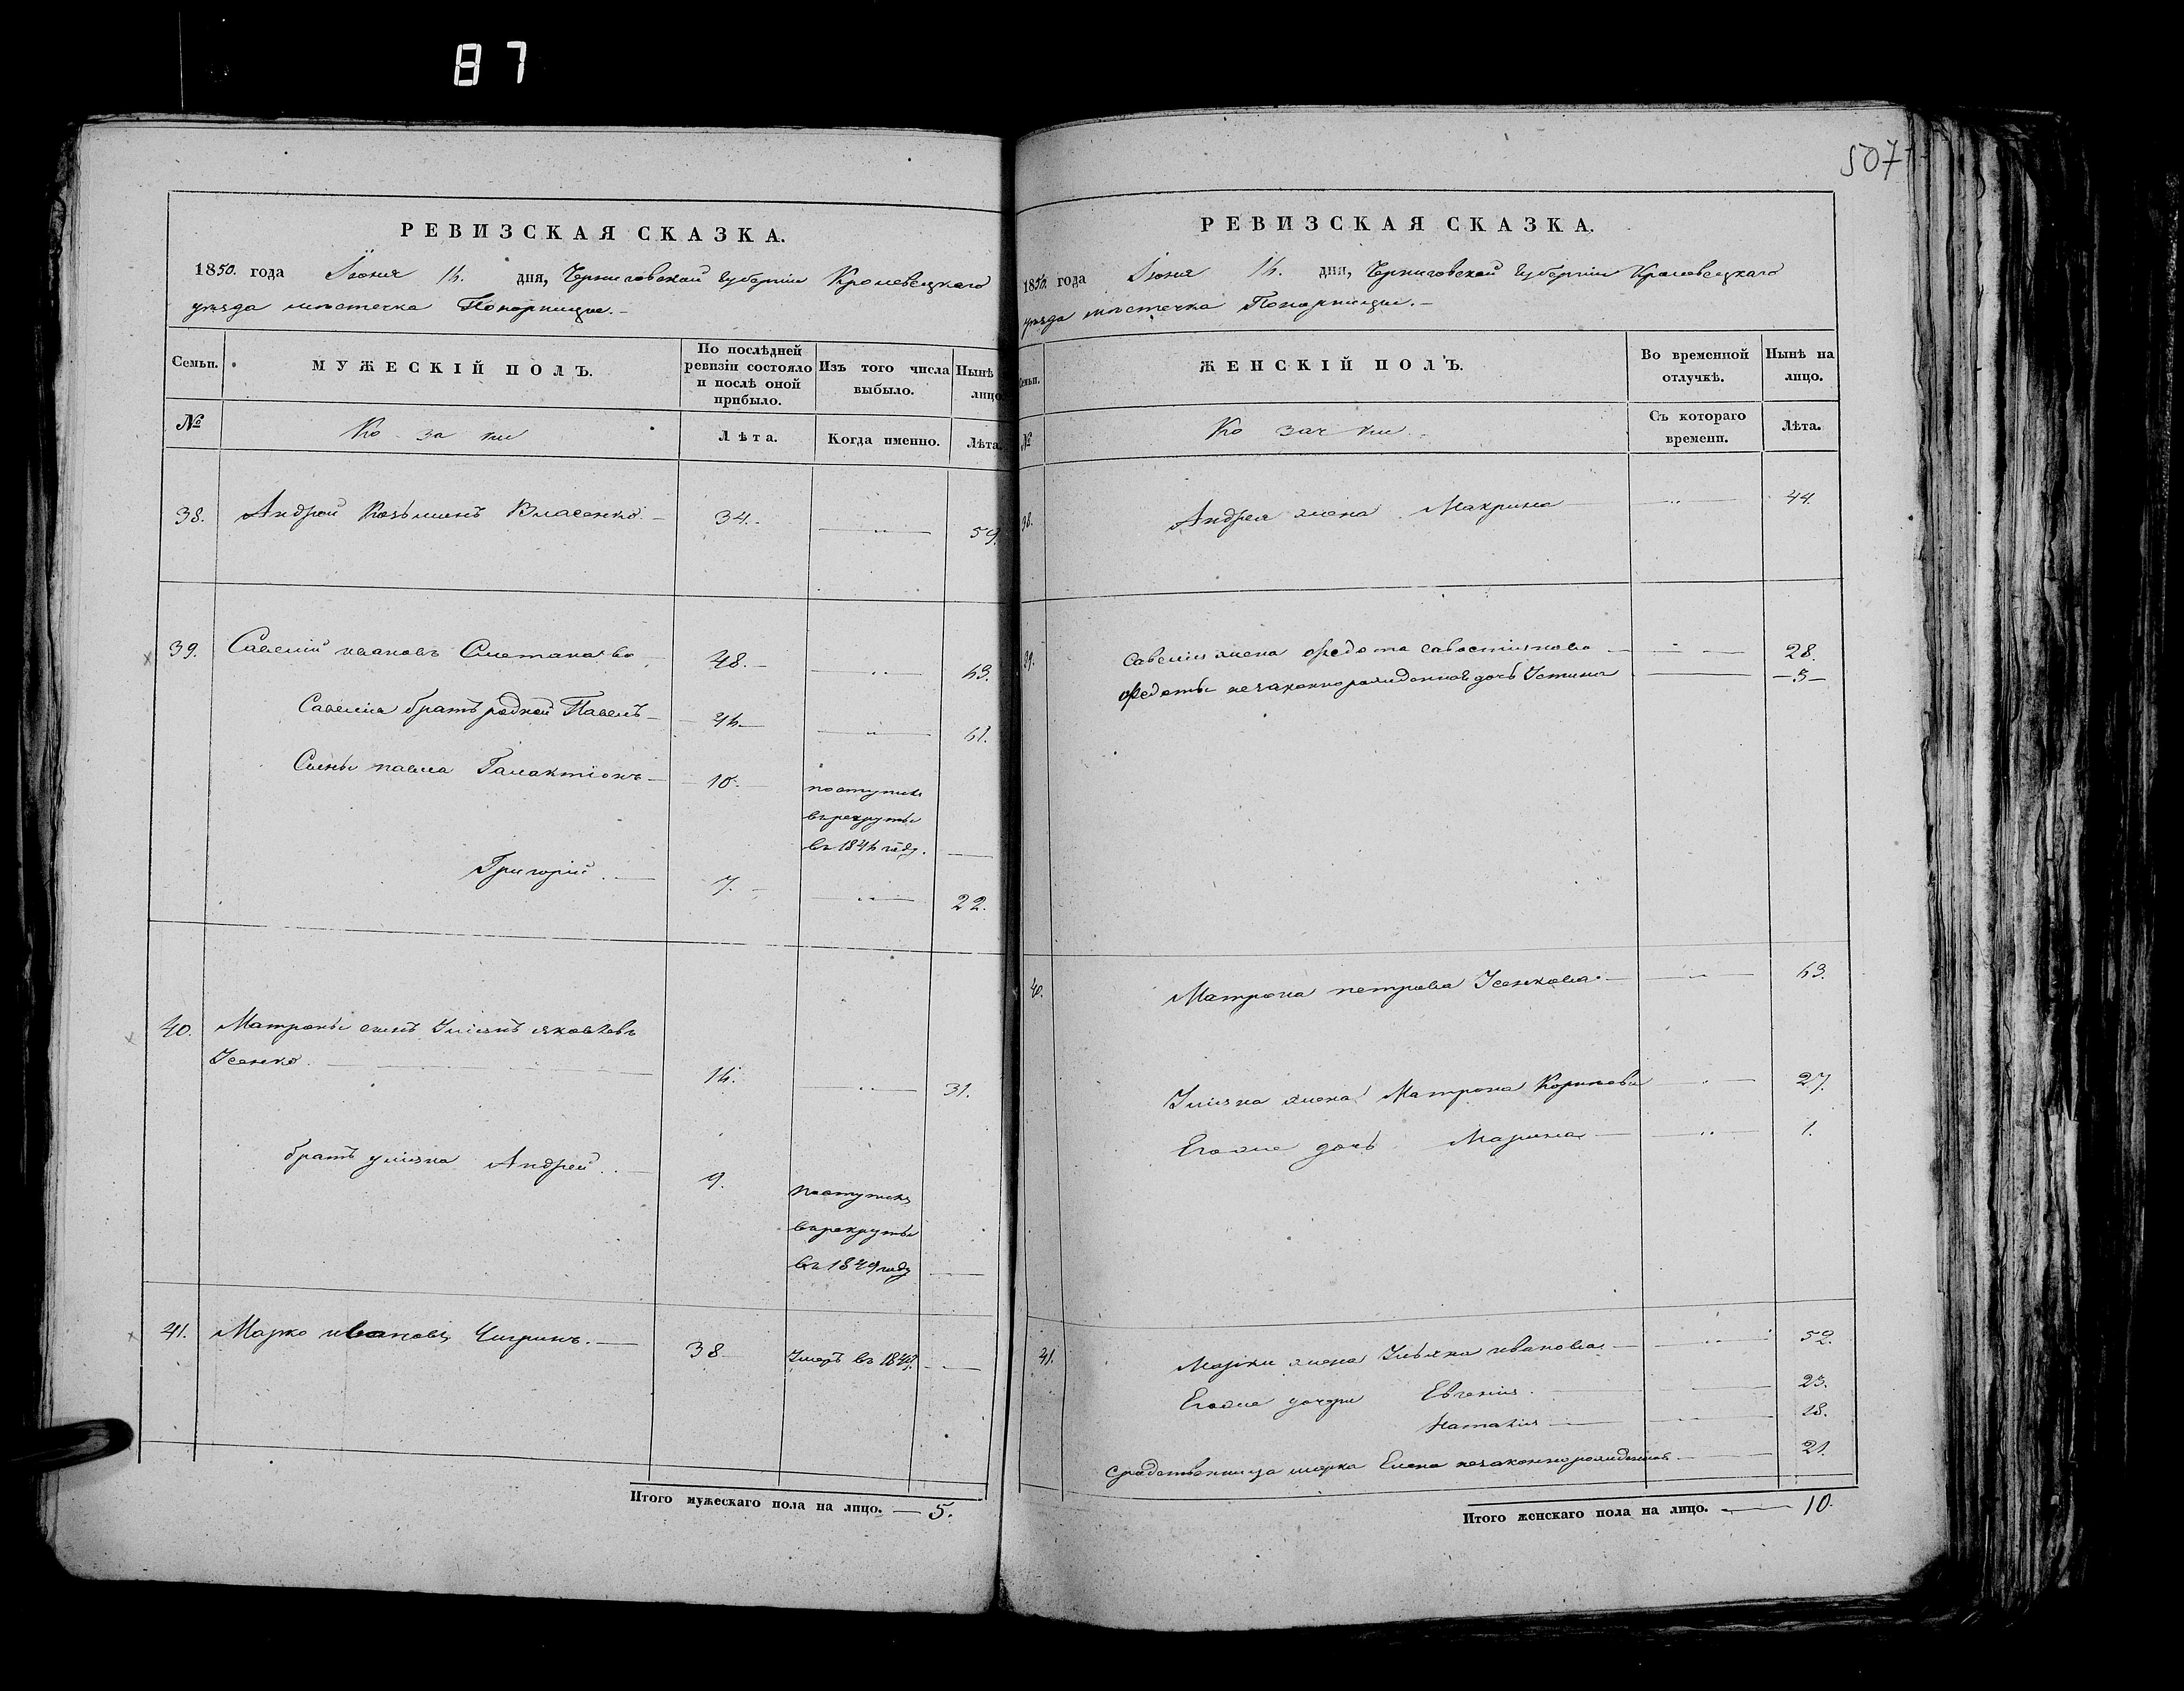 87
507
РЕВИЗСКАЯ СКАЗКА.
1850. года Іюня 16. дня, Черниговской губерніи Кролевецкаго
уѣзда мѣстечка Понорницы.
Семьи.
МУЖЕСКІЙ ПОЛЪ.
По послѣдней ревизіи состояло и послѣ оной прибыло.
Изъ того числа выбыло.
Нынѣ лицо
№
Козаки
Лѣта.
Когда именно.
Лѣта.
38. Андрей Козьминъ Власенко. 34. 59.
39. Савелій ивановъ 48. 63.
Савелія братъ родной Павелъ 46. 61.
Сыны павла Галактіонъ 10.
поступилъ
въ рекруты
въ 1846 году.
Григорій. 7. 22.
40. Матроны сынъ Уліянъ яковлевъ
Усенко. 16. 31.
братъ уліяна Андрей. 9.
поступилъ
въ рекруты
въ 1849 году
41. Марко ивановъ Чигринъ. 38 Умеръ въ
Итого мужескаго пола на лицо. 5.
РЕВИЗСКАЯ СКАЗКА.
1850. года Іюня 16. дня, Черниговской губерніи Кролевецкаго
уѣзда мѣстечка Понорницы.
Семьи.
ЖЕНСКІЙ ПОЛЪ.
Во временной отлучкѣ.
Нынѣ на лицо.
№
Козачки.
Съ котораго времени.
Лѣта.
38. Андрея жена Макрина 44.
39. Савелія жена Федота савостіянова 28.
Федоты незаконнорожденная дочь Устина 5
40. Матрона петрова Усенкова 63.
Уліяна жена Матрона 27.
Егоже дочь Марина 1.
41. Марки жена Ульяна иванова 52.
Егоже дочери Евгенія. 23.
Наталія 18.
сродственница марка Елена незаконнорожденная 21.
Итого женскаго пола на лицо. 10.